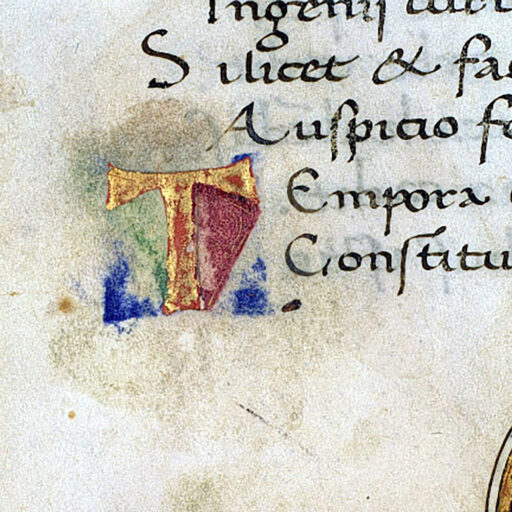 Ingenii
Silicet & fa
Auspicio f
T Empora
Constitu